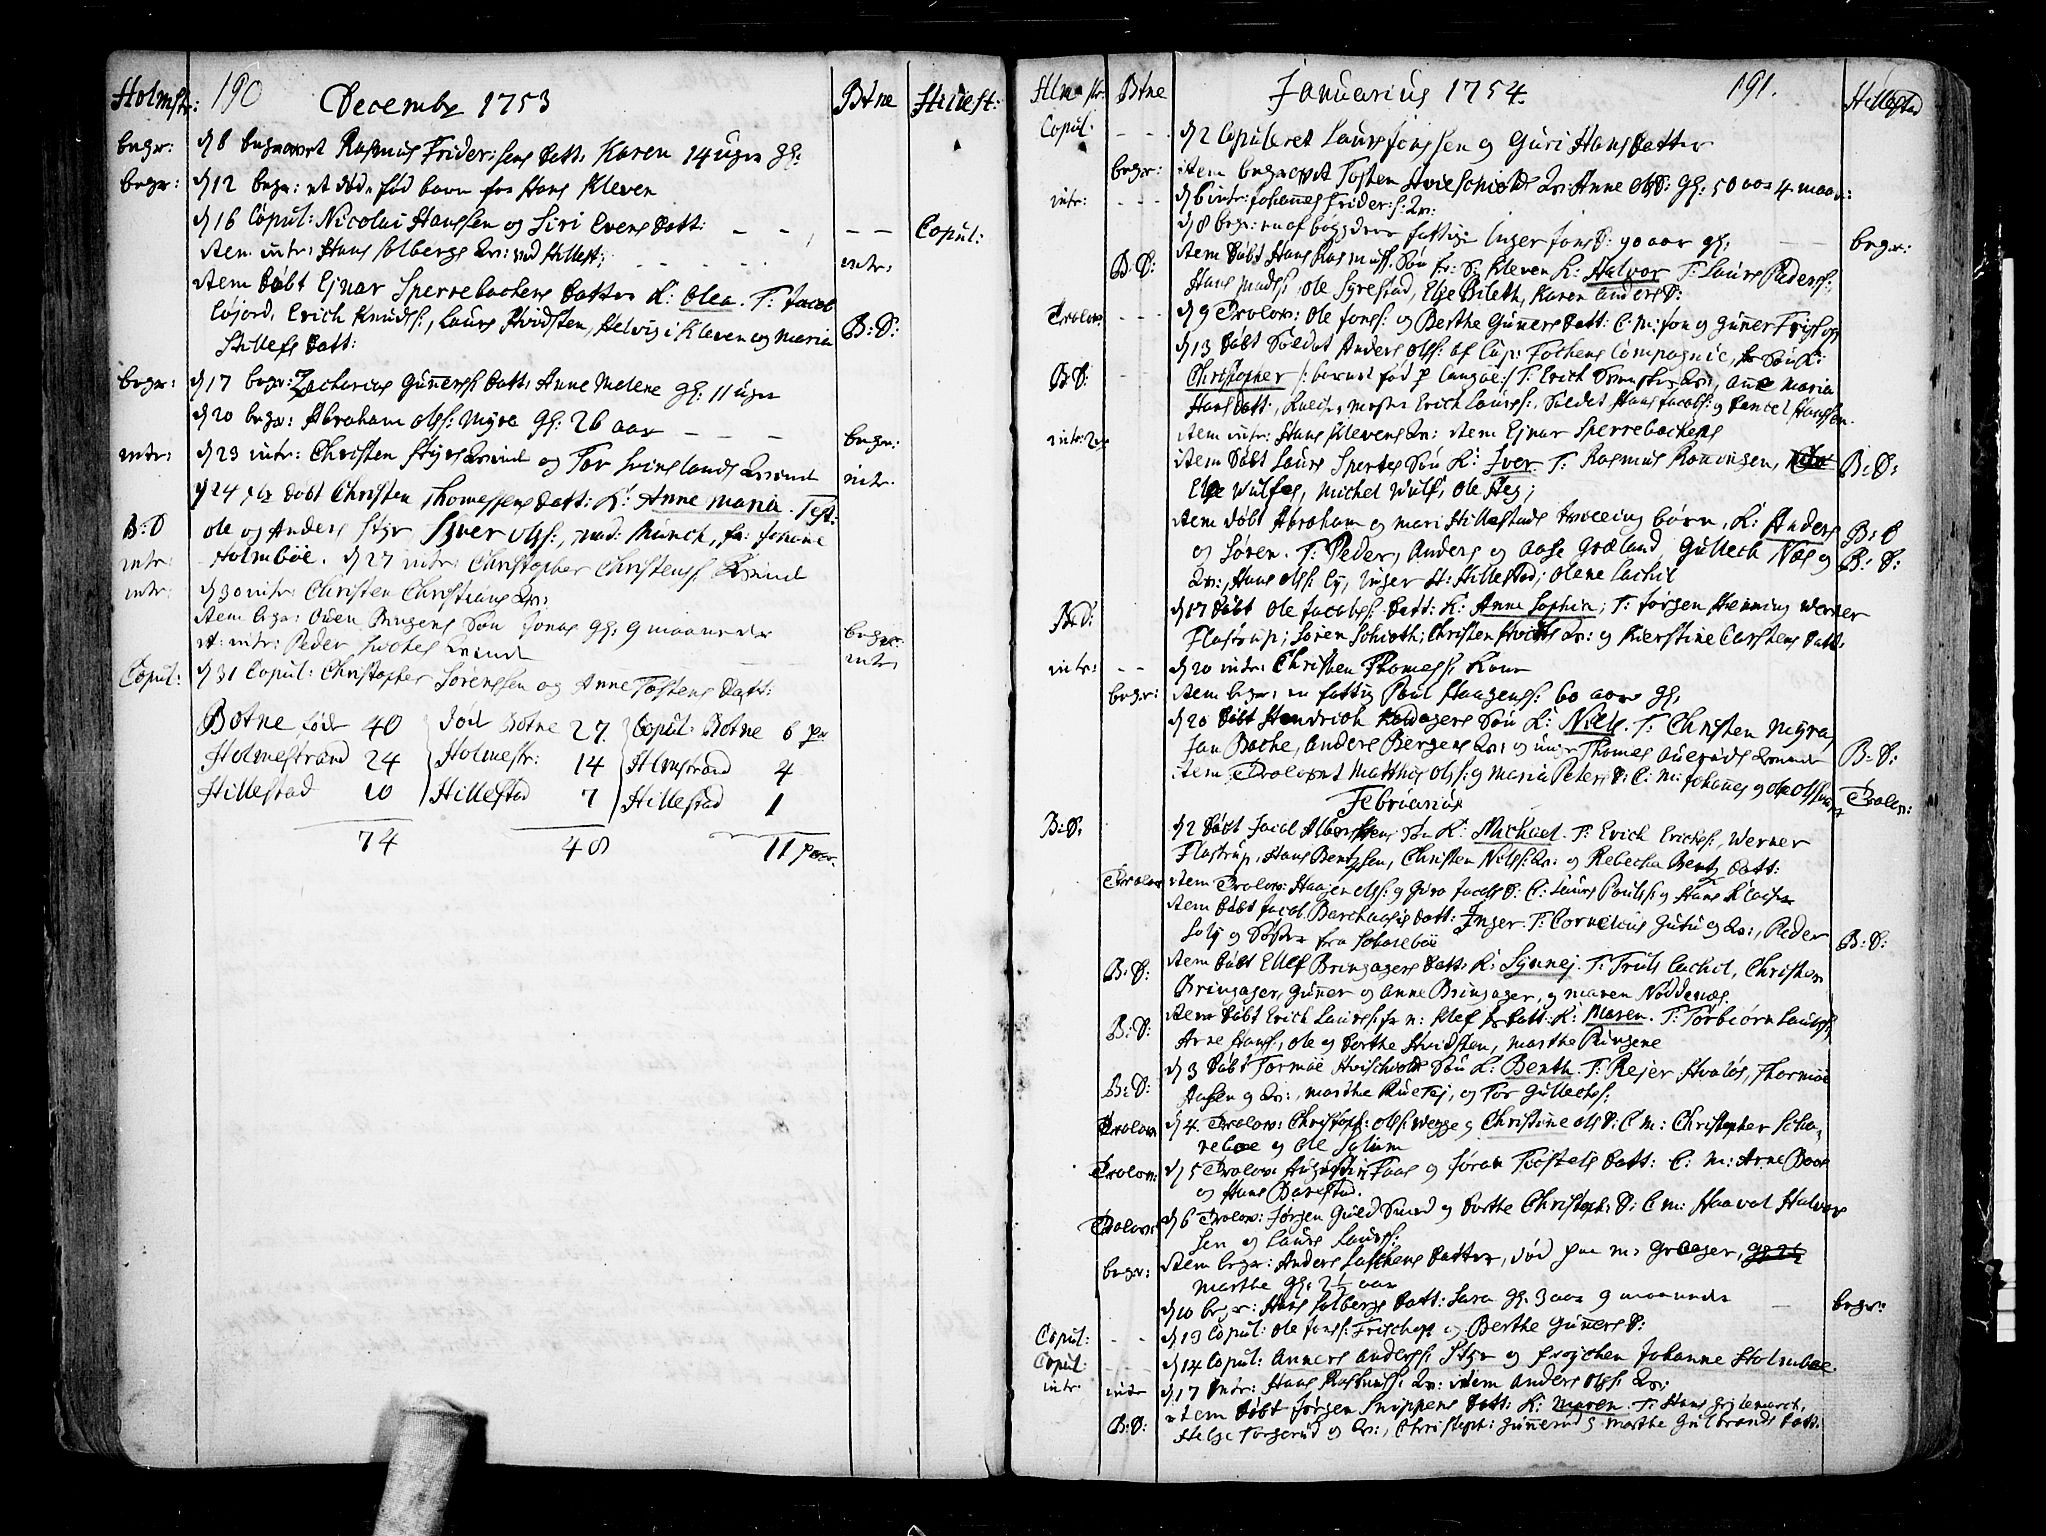 Holmstr: 190 December 1753 Btne Hillest:
begr: d 8 begravet Rasmus Frider:sens Datt: Karen 14 uger gl:
begr: d 12 begr: et død-fød barn for Hans Kleven
d 16 Copul: Nicolai Hanssen og Siri Evens Datt: Copul:
item intr: Hans Solbergs Qv: ved Hillest: intr:
item Døbt Ejnar Sperrebachens Datter K: Olea. T: Jacob
Løjord, Erich Knuds:, Laurs Hvidsten, Helvig i Kleven og Maria B: D:
Datt:
begr: d 17 begr: Zacharius Guners Datt: Anne Melene gl: 11 uger
d 20 begr: Abraham Ols: Myre gl: 26 aar begr:
intr: d 23 intr: Christen Styrs Qvinde og Tor Svinelands Qvinde intr:
d 24 Døbt Christen Thomessens Datt: K: Anne Maria. Test:
B: D Ole og Anders Styr, Syver Ols:, mad: Münch, fr: Johane
intr: Holmboe. d 27 intr: Christopher Christens: Qvinde
intr: d 30 intr: Christen Christians Qv:
item begr: Oven Ringens Søn Jonas gl: 9 maaneder begr:
it: intr: Peder Qvinde intr:
Copul: d 31 Copul: Christopher Sørenssen og Anne Tostens Datt:
Botne føder 40 død Botne 27 Copul: Botne 6 par
Holmestrand 24 Holmestr: 14 Holmstrand 4
Hillestad 10 Hillestad 7 Hillestad 1
74 48 11 par.
Hlmestr: Btne Januarius 1754. 191. Hillestad
Copul: d 2 Copuleret Laurs Jonssen og Guri Hans Datter
begr: item begravet Tosten Hvitschiolds Qv: Anne Ols D: gl: 50 aar 4 maan:
intr: d 6 intr: Johannes Frider: s: Qv:
d 8 begr: en af bøygdens fattige Inger Jons D: 90 aar gl: begr:
B: D: item Døbt Hans Rasmuss: Søn fr: S: Kleven K: Halvor T: Laurs Peders:,
Hans Mads:, Ole Syrestad, Else Bileth, Karen Anders D:
Trolov: d 9 Trolov: Ole Jons: og Berthe Guners Datt: C: M: Jon og Guner Frishop
d 13 Døbt Soldat Anders Ols: af Cap: Fochens Compagnie, Søn K:
B: D: Christopher /: barnet fød p Langøe:/ T: Erich Qv:, Anne Maria
Hans Datt:, mester Erich Laurs:, Soldat Hans Jacobs: og Daniel Hanssen.
intr: 2 item intr: Hans Klevens Qv: item Ejnar Sperrebachens
item Døbt Laurs Sperres Søn K: Iver. T: Rasmus Rønningen, B: D:
Else Wulfes, Michel Wulf, Ole Heg;
item døbt Abraham og Mari Hillestads tvilling børn, K: Anders B: D
og Søren. T: Peder, Anders og Aase Græland, Gullech Næs og B: D:
Qv:, Hans Ols: Ey, Inger H: Hillestad; Olene Lachil
B: D: d 17 Døbt Ole Jacobs: Datt: K: Anne Sophie; T: Jørgen Henning Werner
Flastrup; Søren Schioth; Christen Qv: og Kierstine Carstens Datt:
intr: d 20 intr: Christen Thomess: Kone
begr: item begr: en fattig Poul Haagens: 60 aar gl:
d 20 Døbt Hendrich Søn K: Niels. T: Christen Myra,
Jan Bache, Anders Bergens Qv: og unge Thomes Qvinde B: D:
item Trolovet Matthis Ols: og Maria Peters D: C: M: Johannes og Ole Trolov:
Februarius
B: D: d 2 Døbt Jacob Søn K: Michael T: Erich Erichs:, Werner
Flastrup, Hans Bentzen, Christen Nils: Qv: og Rebecha Bentz Datt:
Trolov item Trolov: Haagen Ols: og Gura Jacobs D: C: Laurs Pouls: og Hans
item Døbt Jacob Datt: Inger. T: Cornelius Gutu og Qv:, Peder
Solj og Søster fra B: D:
B: D: item Døbt Ellef Bringagers Datt: K: Synnej. T: Truls Lachil, Christen
Bringager, Guner og Anne Bringager, og Maren Noddenæs.
B: D: item Døbt Erich Laurs: fr n: Klef Datt: K: Maren. T: Torbiørn Laurs:,
Arne Hans:, Ole og Dorthe Hvidsten, Marthe Ringene
B: D: d 3 Døbt Tormoe Hvitschiold Søn K: Benth. T: Rejer Hvaløs, Thormoe
Aasen og Qv:, Marthe, og Tor Gullechs:
Trolov: d 4. Trolov: Christoph: Ols: Wegge og Christine Ols D: C: M: Christopher Scha-
neboe og Ole Solum
Trolov: d 5 Trolov: Augustin Faas og Jøran Tostels Datt: C: M: Arne Boor
og Hans Barestad.
Trolov: d 6 Trolov: Jørgen Guldsmed og Dorthe Christoph: D: C M: Haavol Halvor
sen og Laurs Laurs:
begr: item begr: Anders Datter, død paa n: Graager,
Marthe gl: 2½ aar
d 10 begr: Hans Solbergs Datt: Sara gl: 3 aar 9 maaneder begr:
Copul: d 13 Copul: Ole Jons: Frischop og Berthe Guners D:
Copul: d 14 Copul: Anders Anders: Styr og frøjchen Johanne Holmboe.
intr: intr d 17 intr: Hans Rasmuss: Qv: item Anders Ols: Qv:
item Døbt Jørgen Snippens Datt: K: Maren. T: Hans
B: D: Helge Torgerud og Qv:, Christoph: Gunerud og Marthe Gulbrands Datt: